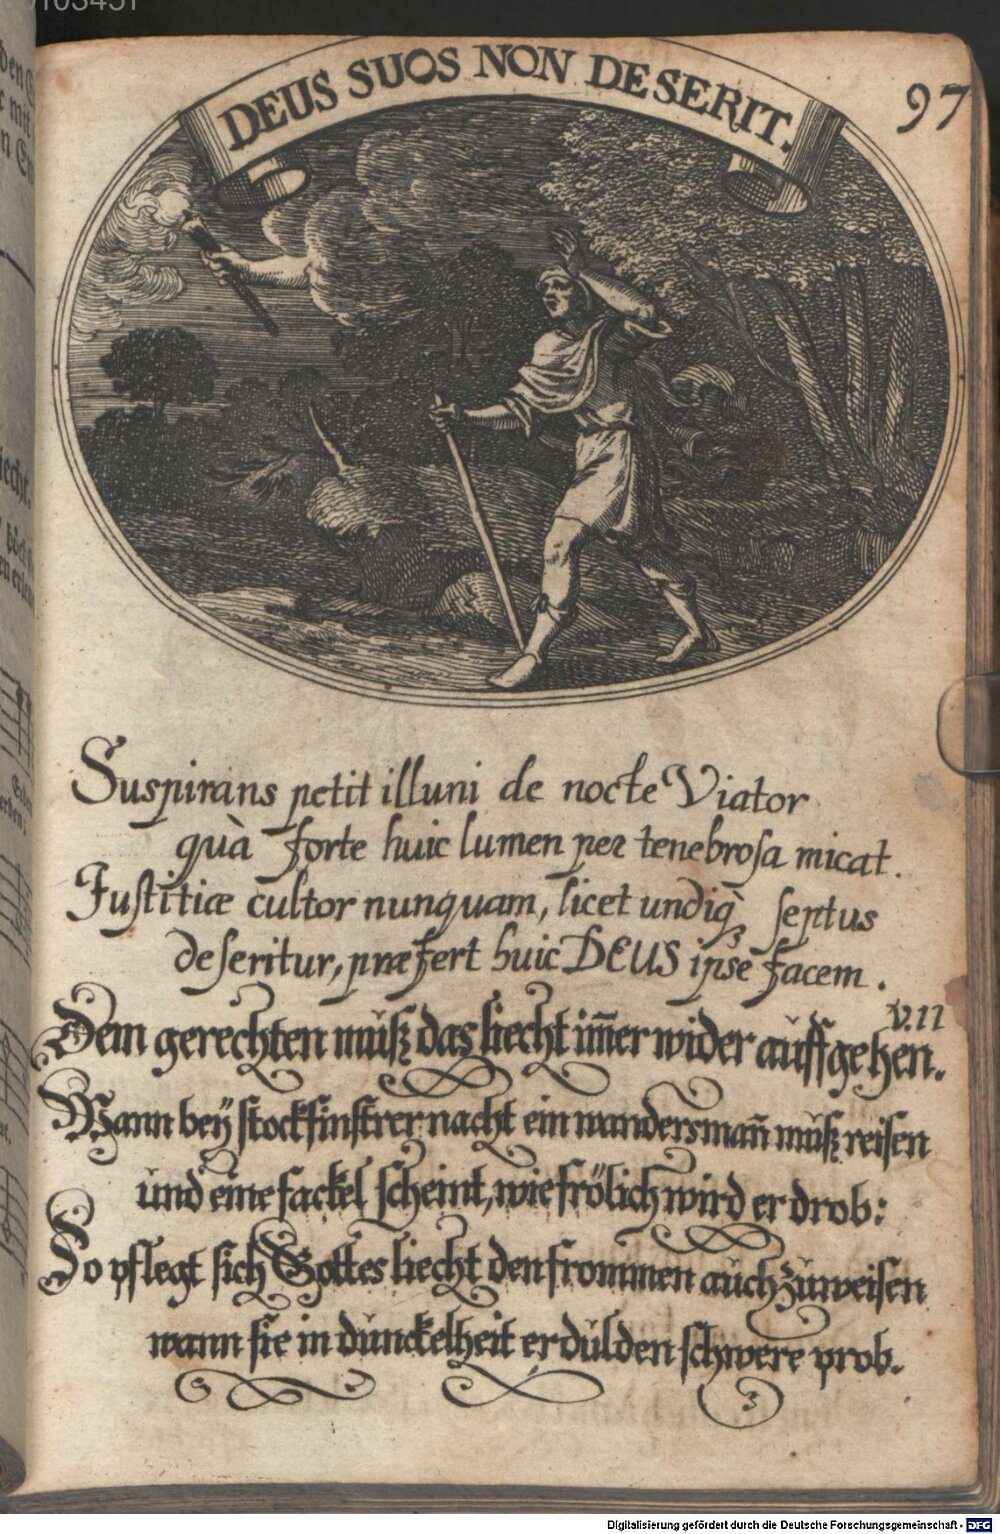 DEUS SUOS NON DESERIT.
97
Suspirans petit illuni de nocte Viator
quà forte huic lumen per tenebrosa micat.
Iuſtitiæ cultor nunquam, licet undiqꝫ ſeptus
deſeritur, præfert huic DEUS ipse facem.
v. 11
Dem gerechten můß das liecht im̅er wider aůffgehen.
Wann beÿ ſtockfinſtrer nacht ein wandersman̅ můß reiſen
ůnd eine fackel ſcheint, wie frölich wird er drob:
So pflegt ſich Gottes liecht den frommen aůch zůweiſen
wann ſie in důnckelheit erdůlden ſchwere prob.
Digitalisierung gefördert durch die Deutsche Forschungsgemeinschaft - DFG